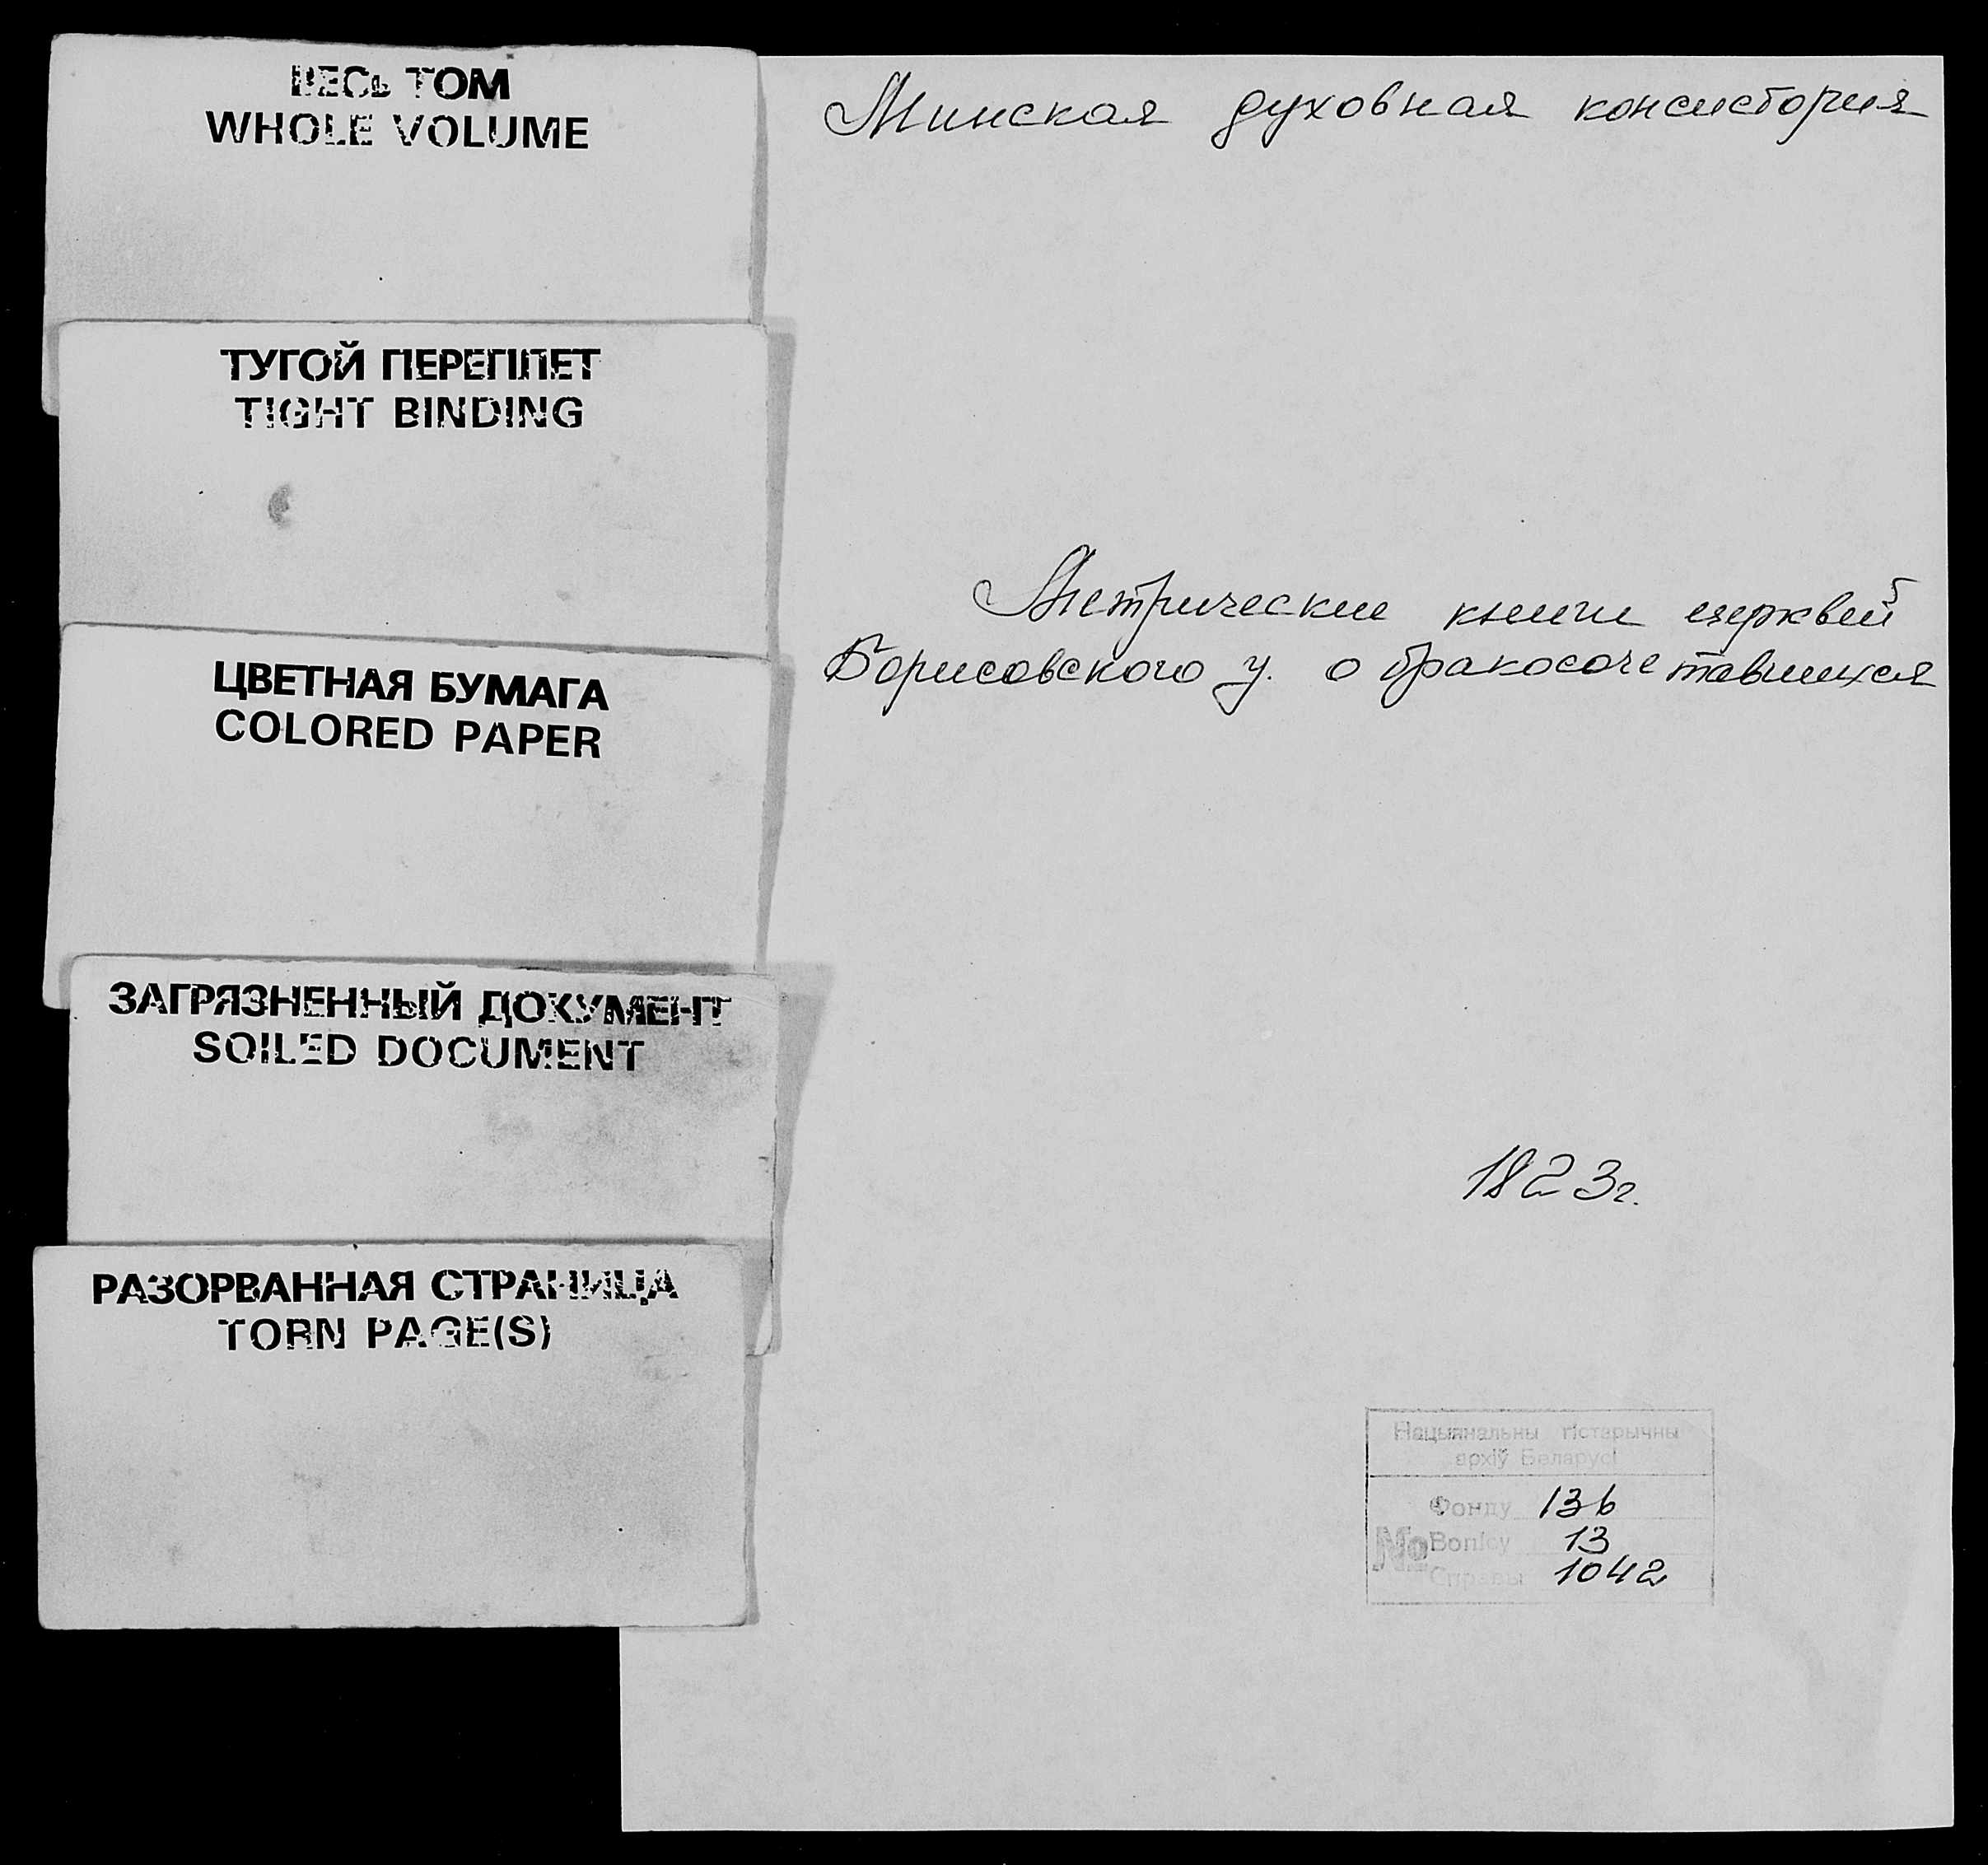 ВЕСЬ ТОМ
WHOLE VOLUME
ТУГОЙ ПЕРЕПЛЕТ
TIGHT BINDING
ЦВЕТНАЯ БУМАГА
COLORED PAPER
ЗАГРЯЗНЕННЫЙ ДОКУМЕНТ
SOILED DOCUMENT
РАЗОРВАННАЯ СТРАНИЦА
TORN PAGE(S)
Минская духовная консистория
Метрические книги церквей
Борисовского у. о бракосочетавшихся
1823г.
Нацыянальны гістарычны
архіў Беларусі
Фонду 136
№ Вопісу 13
Справы 1042